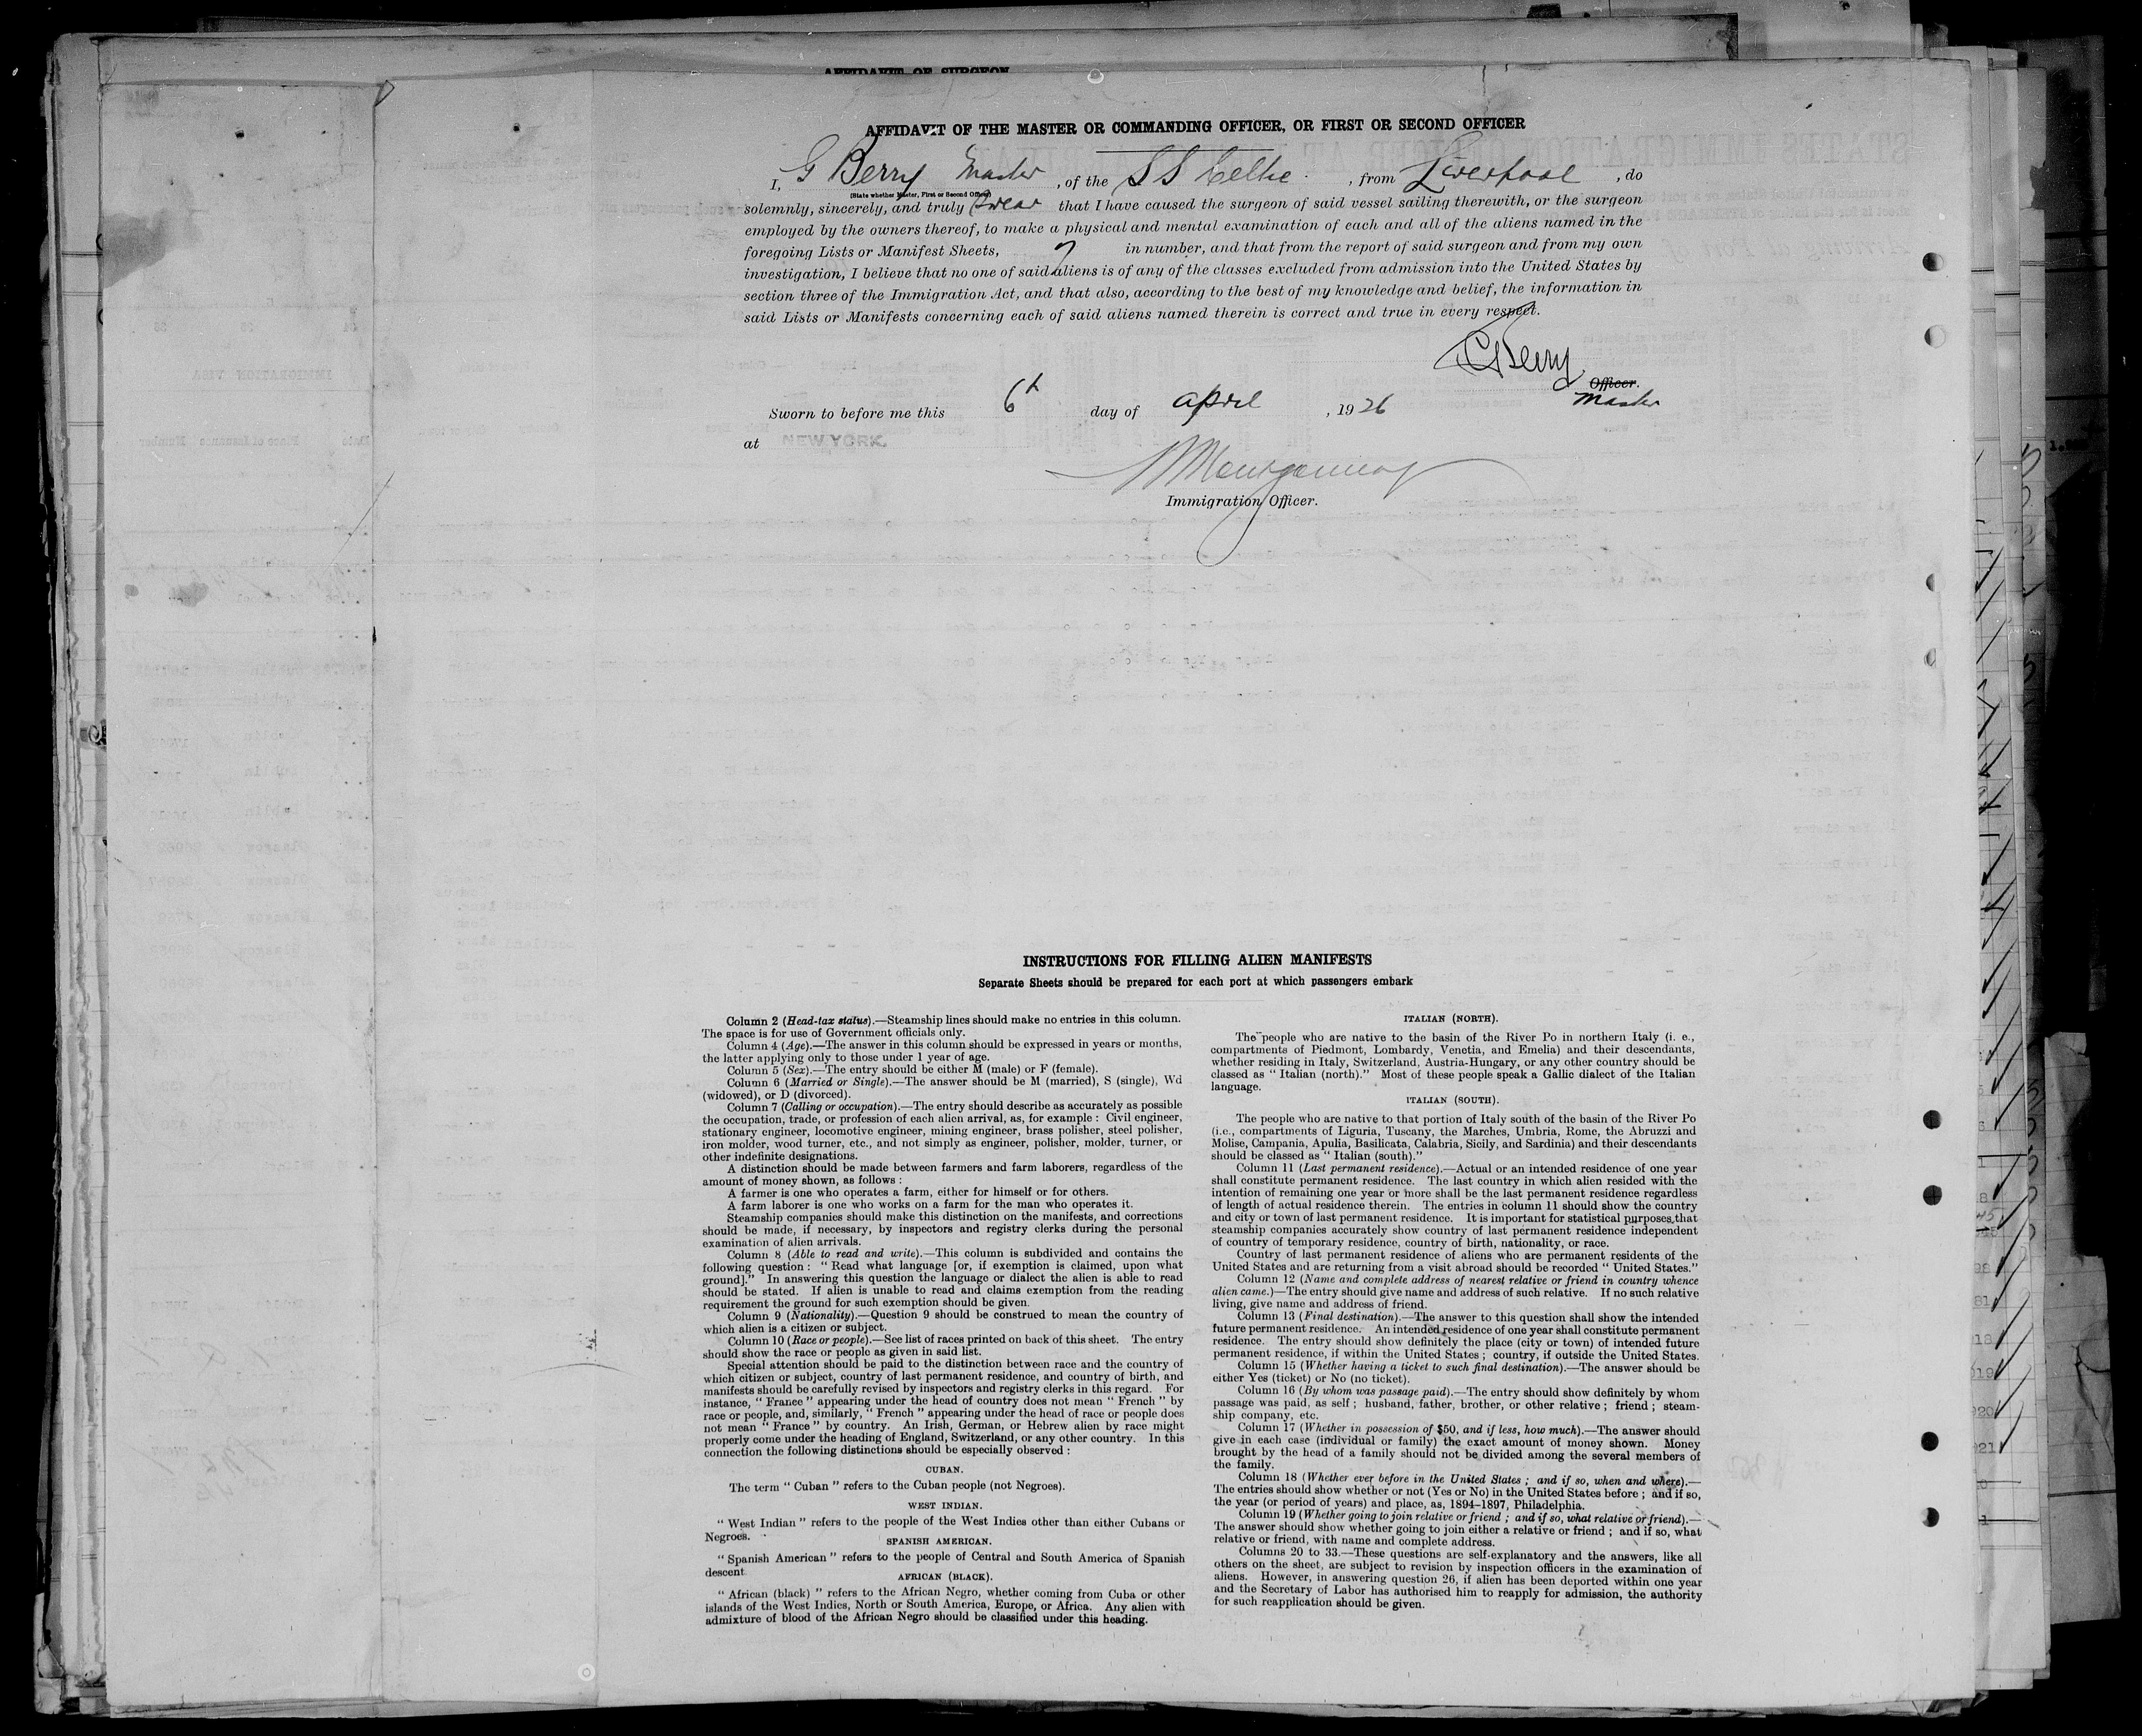 AFFIDAVIT OF SURGEON
AFFIDAVIT OF THE MASTER OR COMMANDING OFFICER, OR FIRST OR SECOND OFFICER
I, G Berry Master, of the SS Celtic, from Liverpool, do
(State whether Master, First or Second Officer)
solemnly, sincerely, and truly swear that I have caused the surgeon of said vessel sailing therewith, or the surgeon
employed by the owners thereof, to make a physical and mental examination of each and all of the aliens named in the
foregoing Lists or Manifest Sheets, 7 in number, and that from the report of said surgeon and from my own
investigation, I believe that no one of said aliens is of any of the classes excluded from admission into the United States by
section three of the Immigration Act, and that also, according to the best of my knowledge and belief, the information in
said Lists or Manifests concerning each of said aliens named therein is correct and true in every respect.
G Berry
Officer.
Master
Sworn to before me this 6th day of april, 1926
at NEW YORK.
Montgomery
Immigration Officer.
INSTRUCTIONS FOR FILLING ALIEN MANIFESTS
Separate Sheets should be prepared for each port at which passengers embark
Column 2 (Head-tax status).—Steamship lines should make no entries in this column.
The space is for use of Government officials only.
Column 4 (Age).—The answer in this column should be expressed in years or months,
the latter applying only to those under 1 year of age.
Column 5 (Sex).—The entry should be either M (male) or F (female).
Column 6 (Married or Single).—The answer should be M (married), S (single), Wd
(widowed), or D (divorced).
Column 7 (Calling or occupation).—The entry should describe as accurately as possible
the occupation, trade, or profession of each alien arrival, as, for example : Civil engineer,
stationary engineer, locomotive engineer, mining engineer, brass polisher, steel polisher,
iron molder, wood turner, etc., and not simply as engineer, polisher, molder, turner, or
other indefinite designations.
A distinction should be made between farmers and farm laborers, regardless of the
amount of money shown, as follows :
A farmer is one who operates a farm, either for himself or for others.
A farm laborer is one who works on a farm for the man who operates it.
Steamship companies should make this distinction on the manifests, and corrections
should be made, if necessary, by inspectors and registry clerks during the personal
examination of alien arrivals.
Column 8 (Able to read and write).—This column is subdivided and contains the
following question : “ Read what language [or, if exemption is claimed, upon what
ground].” In answering this question the language or dialect the alien is able to read
should be stated. If alien is unable to read and claims exemption from the reading
requirement the ground for such exemption should be given.
Column 9 (Nationality).—Question 9 should be construed to mean the country of
which alien is a citizen or subject.
Column 10 (Race or people).—See list of races printed on back of this sheet. The entry
should show the race or people as given in said list.
Special attention should be paid to the distinction between race and the country of
which citizen or subject, country of last permanent residence, and country of birth, and
manifests should be carefully revised by inspectors and registry clerks in this regard. For
instance, “ France ” appearing under the head of country does not mean “ French ” by
race or people, and, similarly, “ French ” appearing under the head of race or people does
not mean “ France ” by country. An Irish, German, or Hebrew alien by race might
properly come under the heading of England, Switzerland, or any other country. In this
connection the following distinctions should be especially observed :
CUBAN.
The term “ Cuban ” refers to the Cuban people (not Negroes).
WEST INDIAN.
“ West Indian ” refers to the people of the West Indies other than either Cubans or
Negroes.
SPANISH AMERICAN.
“ Spanish American ” refers to the people of Central and South America of Spanish
descent.
AFRICAN (BLACK).
“ African (black) ” refers to the African Negro, whether coming from Cuba or other
islands of the West Indies, North or South America, Europe, or Africa. Any alien with
admixture of blood of the African Negro should be classified under this heading.
ITALIAN (NORTH).
The people who are native to the basin of the River Po in northern Italy (i. e.,
compartments of Piedmont, Lombardy, Venetia, and Emelia) and their descendants,
whether residing in Italy, Switzerland, Austria-Hungary, or any other country should be
classed as “ Italian (north).” Most of these people speak a Gallic dialect of the Italian
language.
ITALIAN (SOUTH).
The people who are native to that portion of Italy south of the basin of the River Po
(i.e., compartments of Liguria, Tuscany, the Marches, Umbria, Rome, the Abruzzi and
Molise, Campania, Apulia, Basilicata, Calabria, Sicily, and Sardinia) and their descendants
should be classed as “ Italian (south).”
Column 11 (Last permanent residence).—Actual or an intended residence of one year
shall constitute permanent residence. The last country in which alien resided with the
intention of remaining one year or more shall be the last permanent residence regardless
of length of actual residence therein. The entries in column 11 should show the country
and city or town of last permanent residence. It is important for statistical purposes that
steamship companies accurately show country of last permanent residence independent
of country of temporary residence, country of birth, nationality, or race.
Country of last permanent residence of aliens who are permanent residents of the
United States and are returning from a visit abroad should be recorded “ United States.”
Column 12 (Name and complete address of nearest relative or friend in country whence
alien came.)—The entry should give name and address of such relative. If no such relative
living, give name and address of friend.
Column 13 (Final destination).—The answer to this question shall show the intended
future permanent residence. An intended residence of one year shall constitute permanent
residence. The entry should show definitely the place (city or town) of intended future
permanent residence, if within the United States ; country, if outside the United States.
Column 15 (Whether having a ticket to such final destination).—The answer should be
either Yes (ticket) or No (no ticket).
Column 16 (By whom was passage paid).—The entry should show definitely by whom
passage was paid, as self ; husband, father, brother, or other relative ; friend ; steam-
ship company, etc.
Column 17 (Whether in possession of $50, and if less, how much).—The answer should
give in each case (individual or family) the exact amount of money shown. Money
brought by the head of a family should not be divided among the several members of
the family.
Column 18 (Whether ever before in the United States ; and if so, when and where).—
The entries should show whether or not (Yes or No) in the United States before ; and if so,
the year (or period of years) and place, as, 1894–1897, Philadelphia.
Column 19 (Whether going to join relative or friend ; and if so, what relative or friend).—
The answer should show whether going to join either a relative or friend ; and if so, what
relative or friend, with name and complete address.
Columns 20 to 33.—These questions are self-explanatory and the answers, like all
others on the sheet, are subject to revision by inspection officers in the examination of
aliens. However, in answering question 26, if alien has been deported within one year
and the Secretary of Labor has authorised him to reapply for admission, the authority
for such reapplication should be given.